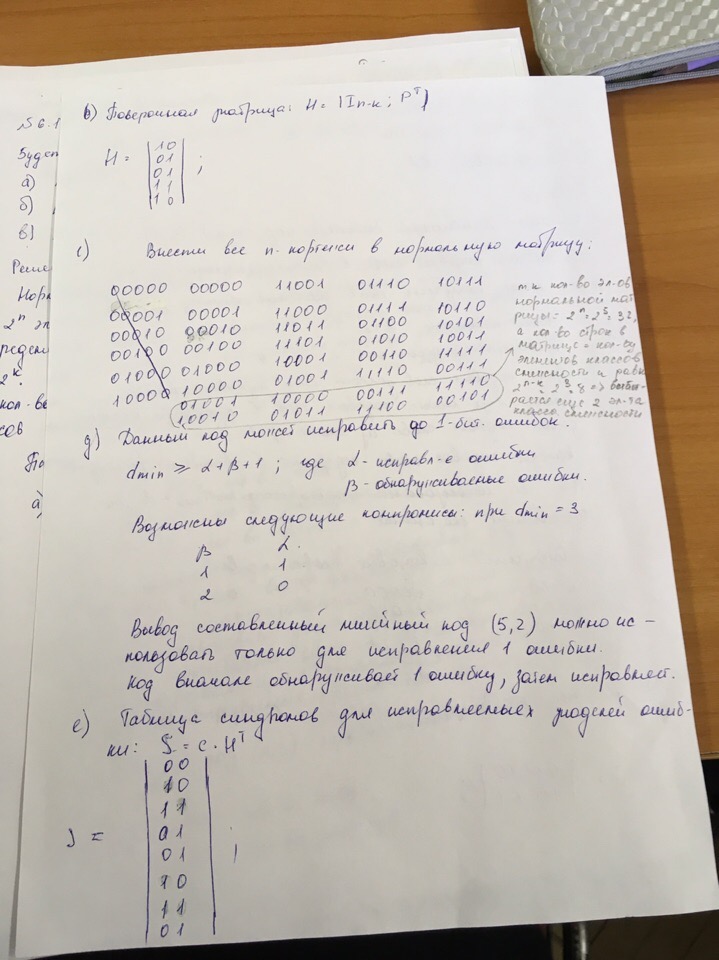 №6.1
Буд
а)
б)
в)
Реше
Норм
2ⁿ эл
редел
2ᵏ.
кол-во
сов
а)
b) Поверочная матрица: H = |Iₙ₋ₖ ; Pᵀ|
H = |10
01
01
11
10| ;
c) Внести все n-кортежи в нормальную матрицу:
00000 00000 11001 01110 10111
00001 00001 11000 01111 10110
00010 00010 11011 01100 10101
00100 00100 11101 01010 10011
01000 01000 10001 00110 11111
10000 10000 01001 11110 00111
01001 10000 00111 11110
10010 01011 11100 00101
т.к кол-во эл-ов
нормальной мат
рицы: 2ⁿ=2⁵=32,
а кол-во строк в
матрице = кол-ву
элементов классов
смежности и равн
2ⁿ⁻ᵏ = 2³ = 8 => выби-
рается еще 2 эл-та
класса смежности
д) Данный код может исправить до 1-бит. ошибок.
dmin ≥ α+β+1 ; где α - исправл-е ошибки
β - обнаруживаемые ошибки.
Возможны следующие компромисы: при dmin = 3
β α
1 1
2 0
Вывод составленный линейный код (5,2) можно ис-
пользовать только для исправления 1 ошибки.
Код вначале обнаруживает 1 ошибку, затем исправляет.
е) Таблица синдромов для исправляемых моделей ошиб-
ки: S = c · Hᵀ
S = |00
10
11
01
01
10
11
01| ;